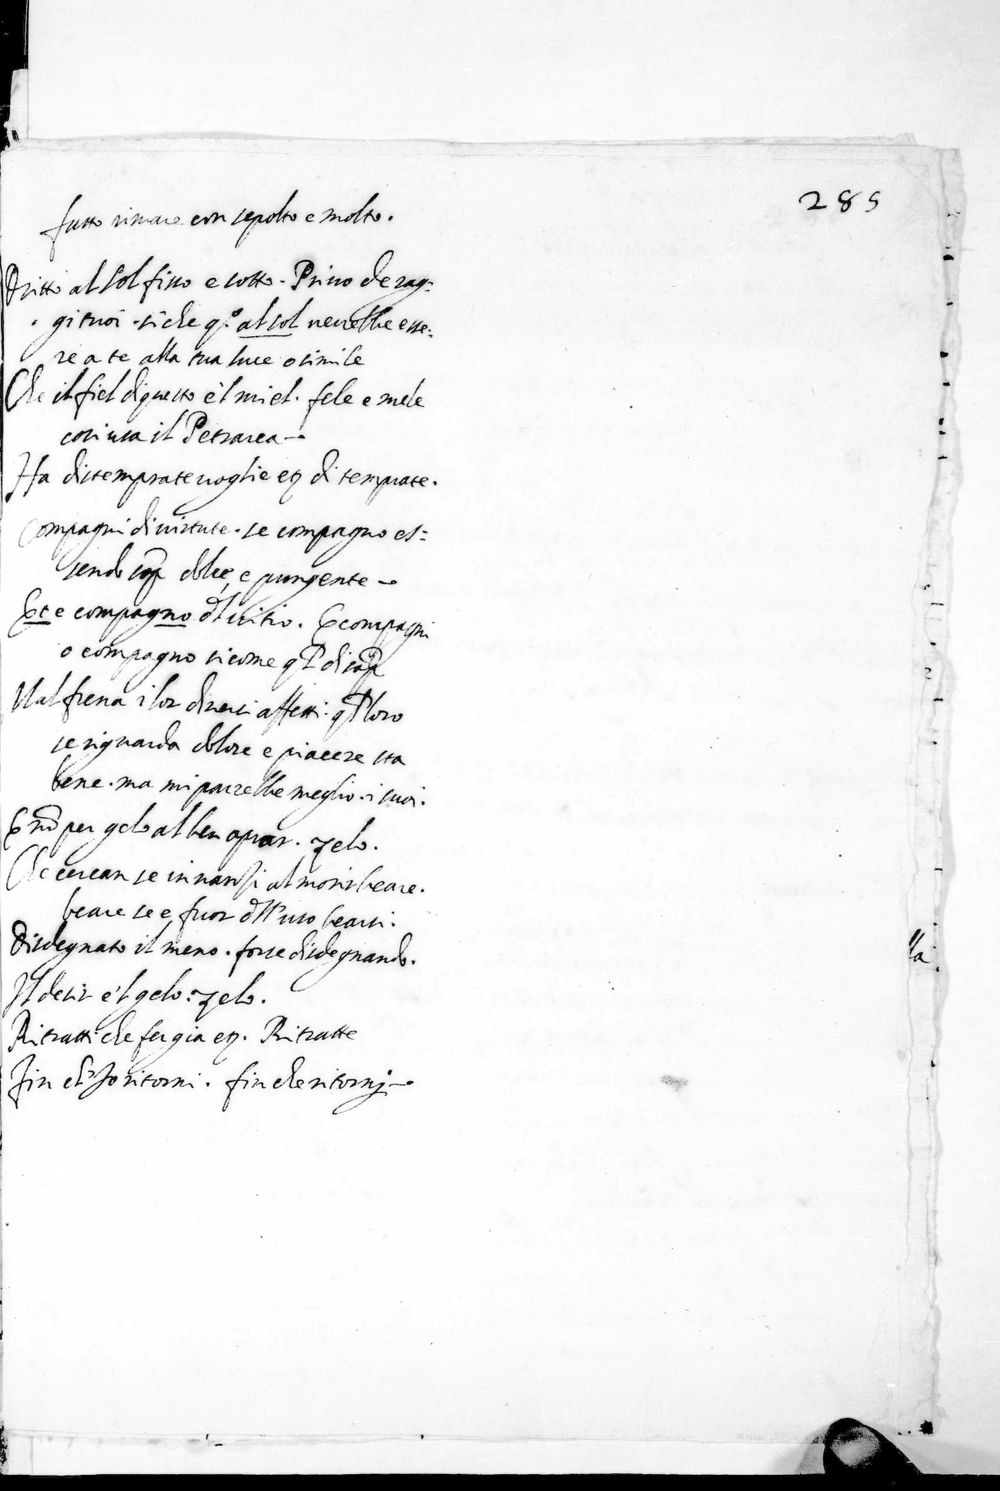 285
fatto rimare con sepolto e molto.
Dritto al sol fisso e sotto. Privo de rag=
gi tuoi. si che q.o al sol verrebbe esse=
re a te alla tua luce o simile
Che il fiel di questo e'l miel. fele e mele
cosi usa il Petrarca
Ha distemprate voglie et di temprate.
Compagni di virtute. se compagno es=
sendo sop dolce, e pungente
Et e compagno d vitio. E compagni
o compagno sicome q di sop
Mal frena i lor diversi affetti: q loro
se riguarda dolore e piacere sta
bene. ma mi parrebbe meglio. i suoi.
E no per gelo al ben oprar. zelo.
Che cercan se innanzi al morir beare.
beare se e, fuor dll'uso bearsi.
Disdegnato il meno. forse disdegnando.
Il desir e'l gelo. zelo.
Ritratti che fer gia et. Ritratte
Fin ch' Jo ritorni. fin che ritorni
lla